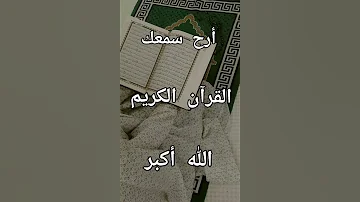 أرح سمعك
القرآن الكريم
الله أكبر